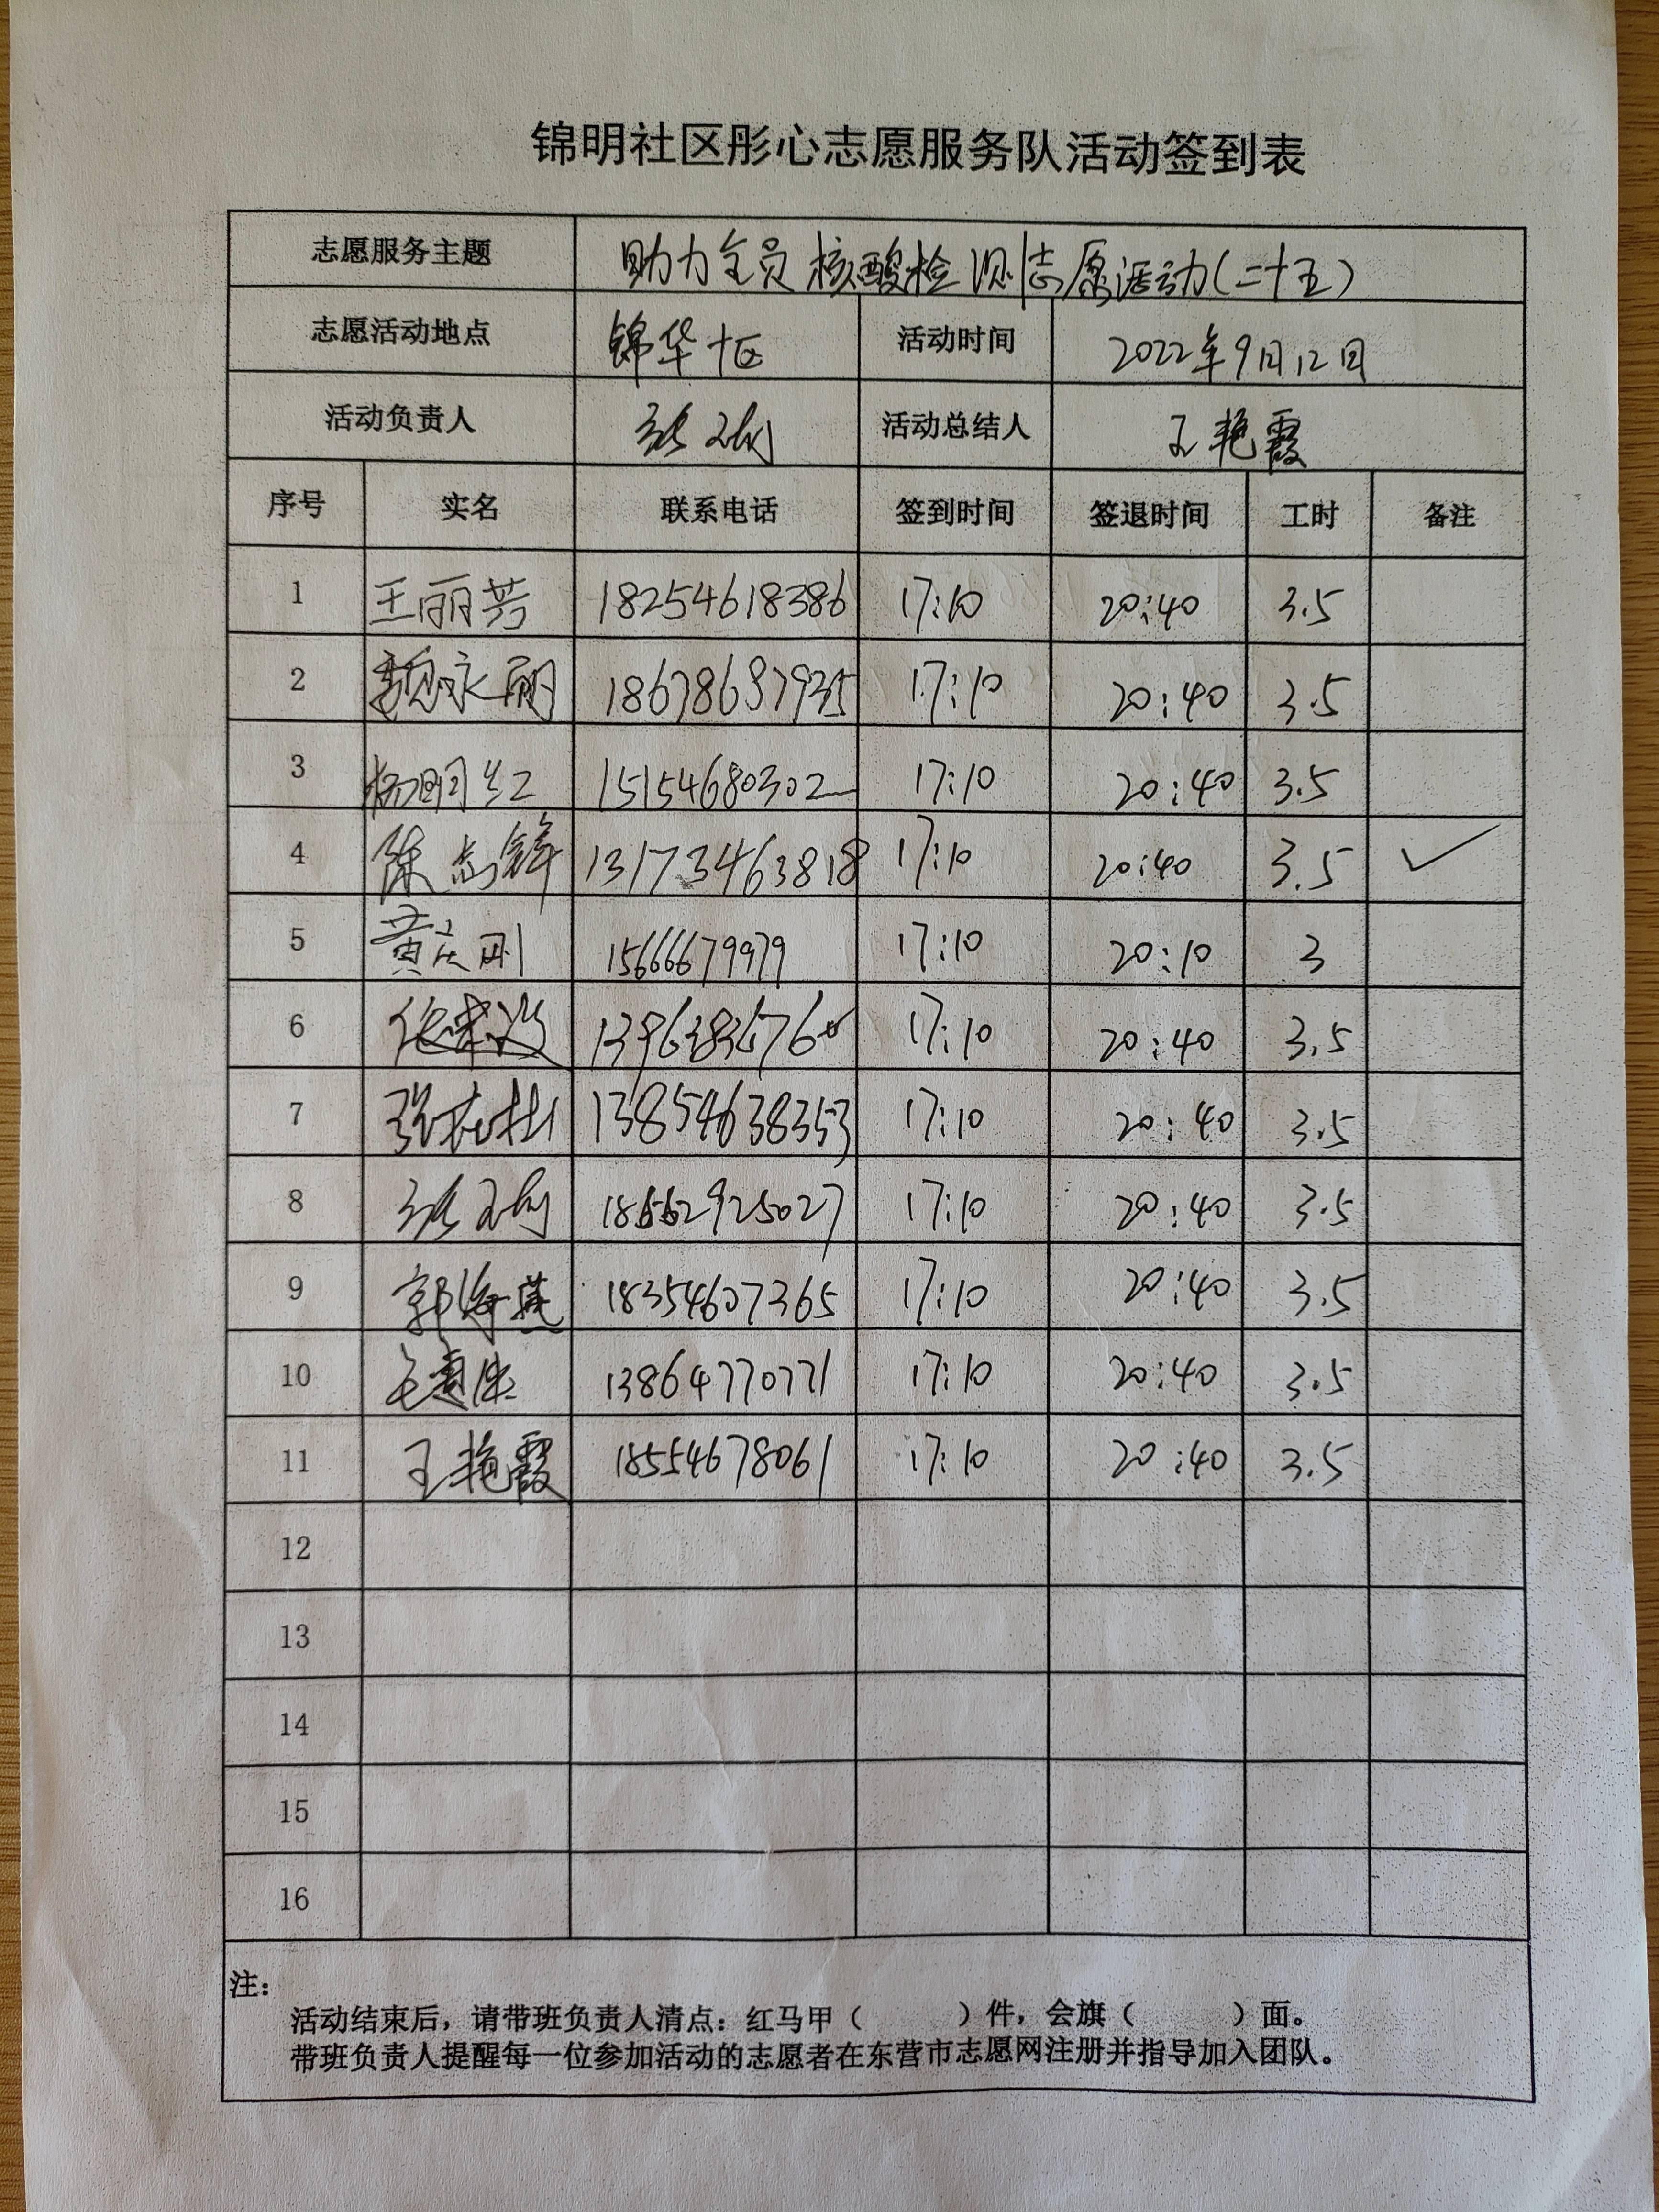 锦明社区彤心志愿服务队活动签到表
志愿服务主题 助力全员核酸检测志愿活动(二十五)
志愿活动地点 锦华十区 活动时间 2022年9月12日
活动负责人 活动总结人 王艳霞
序号 实名 联系电话 签到时间 签退时间 工时 备注
1 王丽芳 18254618386 17:10 20:40 3.5
2 魏永丽 18678697935 17:10 20:40 3.5
3 杨明红 15154680302 17:10 20:40 3.5
4 陈志锋 13173463818 17:10 20:40 3.5 ✓
5 黄庆刚 15666679979 17:10 20:10 3
6 17:10 20:40 3.5
7 13854638353 17:10 20:40 3.5
8 18662925027 17:10 20:40 3.5
9 郭海燕 18354607365 17:10 20:40 3.5
10 13864770771 17:10 20:40 3.5
11 王艳霞 18554678061 17:10 20:40 3.5
12
13
14
15
16
注:
活动结束后,请带班负责人清点:红马甲( )件,会旗( )面。
带班负责人提醒每一位参加活动的志愿者在东营市志愿网注册并指导加入团队。